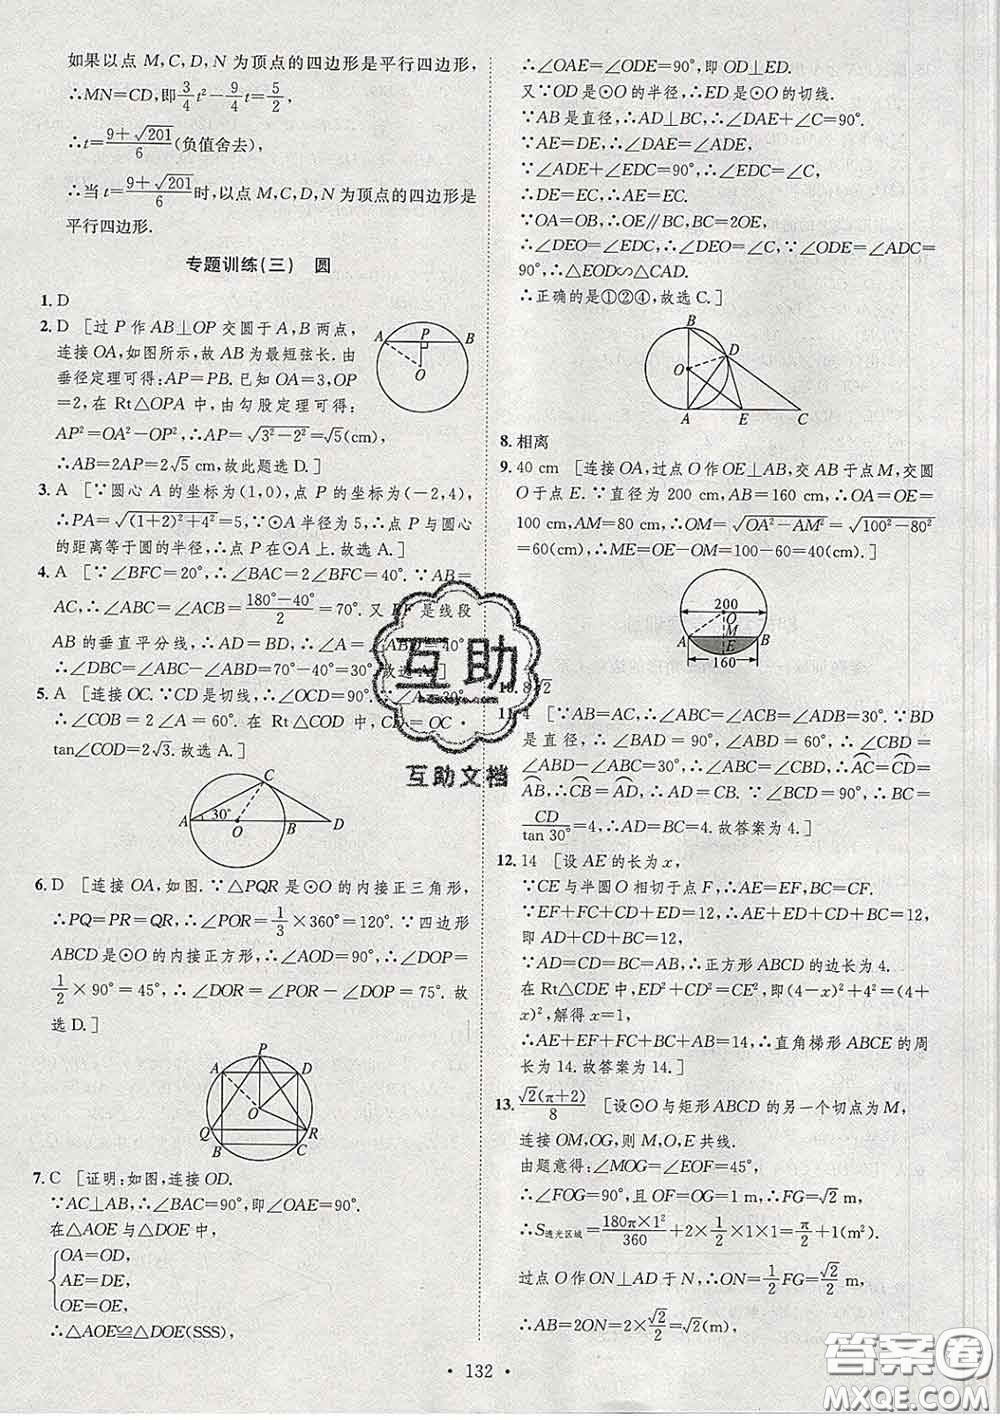 如果以点 M,C,D,N 为顶点的四边形是平行四边形,
∴MN=CD,即3/4t²-9/4t=5/2,
∴t=(9+√201)/6(负值舍去),
∴当 t=(9+√201)/6时,以点 M,C,D,N 为顶点的四边形是
平行四边形.
专题训练(三) 圆
1. D
2. D [过 P 作 AB⊥OP 交圆于 A,B 两点,
连接 OA,如图所示,故 AB 为最短弦长. 由
垂径定理可得:AP=PB. 已知 OA=3,OP
=2,在 Rt△OPA 中,由勾股定理可得:
AP²=OA²-OP²,∴AP=√(3²-2²)=√5(cm)
∴AB=2AP=2√5 cm,故此题选 D.]
A P B O
3. A [∵圆心 A 的坐标为(1,0),点 P 的坐标为(-2,4),
∴PA=√((1+2)²+4²)=5,∵⊙A 半径为5,∴点 P 与圆心
的距离等于圆的半径,∴点 P 在⊙A 上. 故选 A.]
4. A [∵∠BFC=20°,∴∠BAC=2∠BFC=40°. ∵AB=
AC,∴∠ABC=∠ACB=(180°-40°)/2=70°. 又 是线段
AB 的垂直平分线,∴AD=BD,∴∠A= 40°.
∴∠DBC=∠ABC-∠ABD=70°-40°=30°.
5. A [连接 OC. ∵CD 是切线,∴∠OCD=90°. 30°,
∴∠COB=2∠A=60°. 在 Rt△OCD 中,CD=OC·
tan∠COD=2√3. 故选 A.]
A 30° O B C D
6. D [连接 OA,如图. ∵△PQR 是⊙O 的内接正三角形,
∴PQ=PR=QR,∴∠POR=1/3×360°=120°. ∵四边形
ABCD 是⊙O 的内接正方形,∴∠AOD=90°,∴∠DOP=
1/2×90°=45°,∴∠DOR=∠POR-∠DOP=75°. 故
选 D.]
P A D O Q R B C
7. C [证明:如图,连接 OD.
∵AC⊥AB,∴∠BAC=90°,即∠OAE=90°.
在△AOE 与△DOE 中,
OA=OD,
AE=DE,
OE=OE,
∴△AOE≌△DOE(SSS),
∴∠OAE=∠ODE=90°,即 OD⊥ED.
又∵OD 是⊙O 的半径,∴ED 是⊙O 的切线.
∵AB 是直径,∴AD⊥BC,∴∠DAE+∠C=90°.
∵AE=DE,∴∠DAE=∠ADE,
∵∠ADE+∠EDC=90°,∴∠EDC=∠C,
∴DE=EC,∴AE=EC.
∵OA=OB,∴OE∥BC,BC=2OE,
∴∠DEO=∠EDC,∴∠DEO=∠C,∵∠ODE=∠ADC=
90°,∴△EOD∽△CAD.
∴正确的是①②④,故选 C.]
B D O A E C
8. 相离
9. 40 cm [连接 OA,过点 O 作 OE⊥AB,交 AB 于点 M,交圆
O 于点 E. ∵直径为 200 cm,AB=160 cm,∴OA=OE=
100 cm,AM=80 cm,∴OM=√(OA²-AM²)=√(100²-80²)
=60(cm),∴ME=OE-OM=100-60=40(cm).]
200 O M A E B 160
10. 8√2
11. 4 [∵AB=AC,∴∠ABC=∠ACB=∠ADB=30°. ∵BD
是直径,∴∠BAD=90°,∠ABD=60°,∴∠CBD=
∠ABD-∠ABC=30°,∴∠ABC=∠CBD,∴AC=CD=
AB,∴CB=AD,∴AD=CB. ∵∠BCD=90°,∴BC=
CD/tan 30°=4,∴AD=BC=4. 故答案为 4.]
12. 14 [设 AE 的长为 x,
∵CE 与半圆 O 相切于点 F,∴AE=EF,BC=CF.
∵EF+FC+CD+ED=12,∴AE+ED+CD+BC=12,
即 AD+CD+BC=12,
∵AD=CD=BC=AB,∴正方形 ABCD 的边长为 4.
在 Rt△CDE 中,ED²+CD²=CE²,即(4-x)²+4²=(4+
x)²,解得 x=1,
∴AE+EF+FC+BC+AB=14,∴直角梯形 ABCE 的周
长为 14. 故答案为 14.]
13. √2(π+2)/8 [设⊙O 与矩形 ABCD 的另一个切点为 M,
连接 OM,OG,则 M,O,E 共线.
由题意得:∠MOG=∠EOF=45°,
∴∠FOG=90°,且 OF=OG=1 m,∴FG=√2 m,
∴S透光区域=180π×1²/360+2×1/2×1×1=π/2+1(m²).
过点 O 作 ON⊥AD 于 N,∴ON=1/2FG=√2/2 m,
∴AB=2ON=2×√2/2=√2(m),
· 132 ·
互助
互助文档
答案圈
MXQE.COM